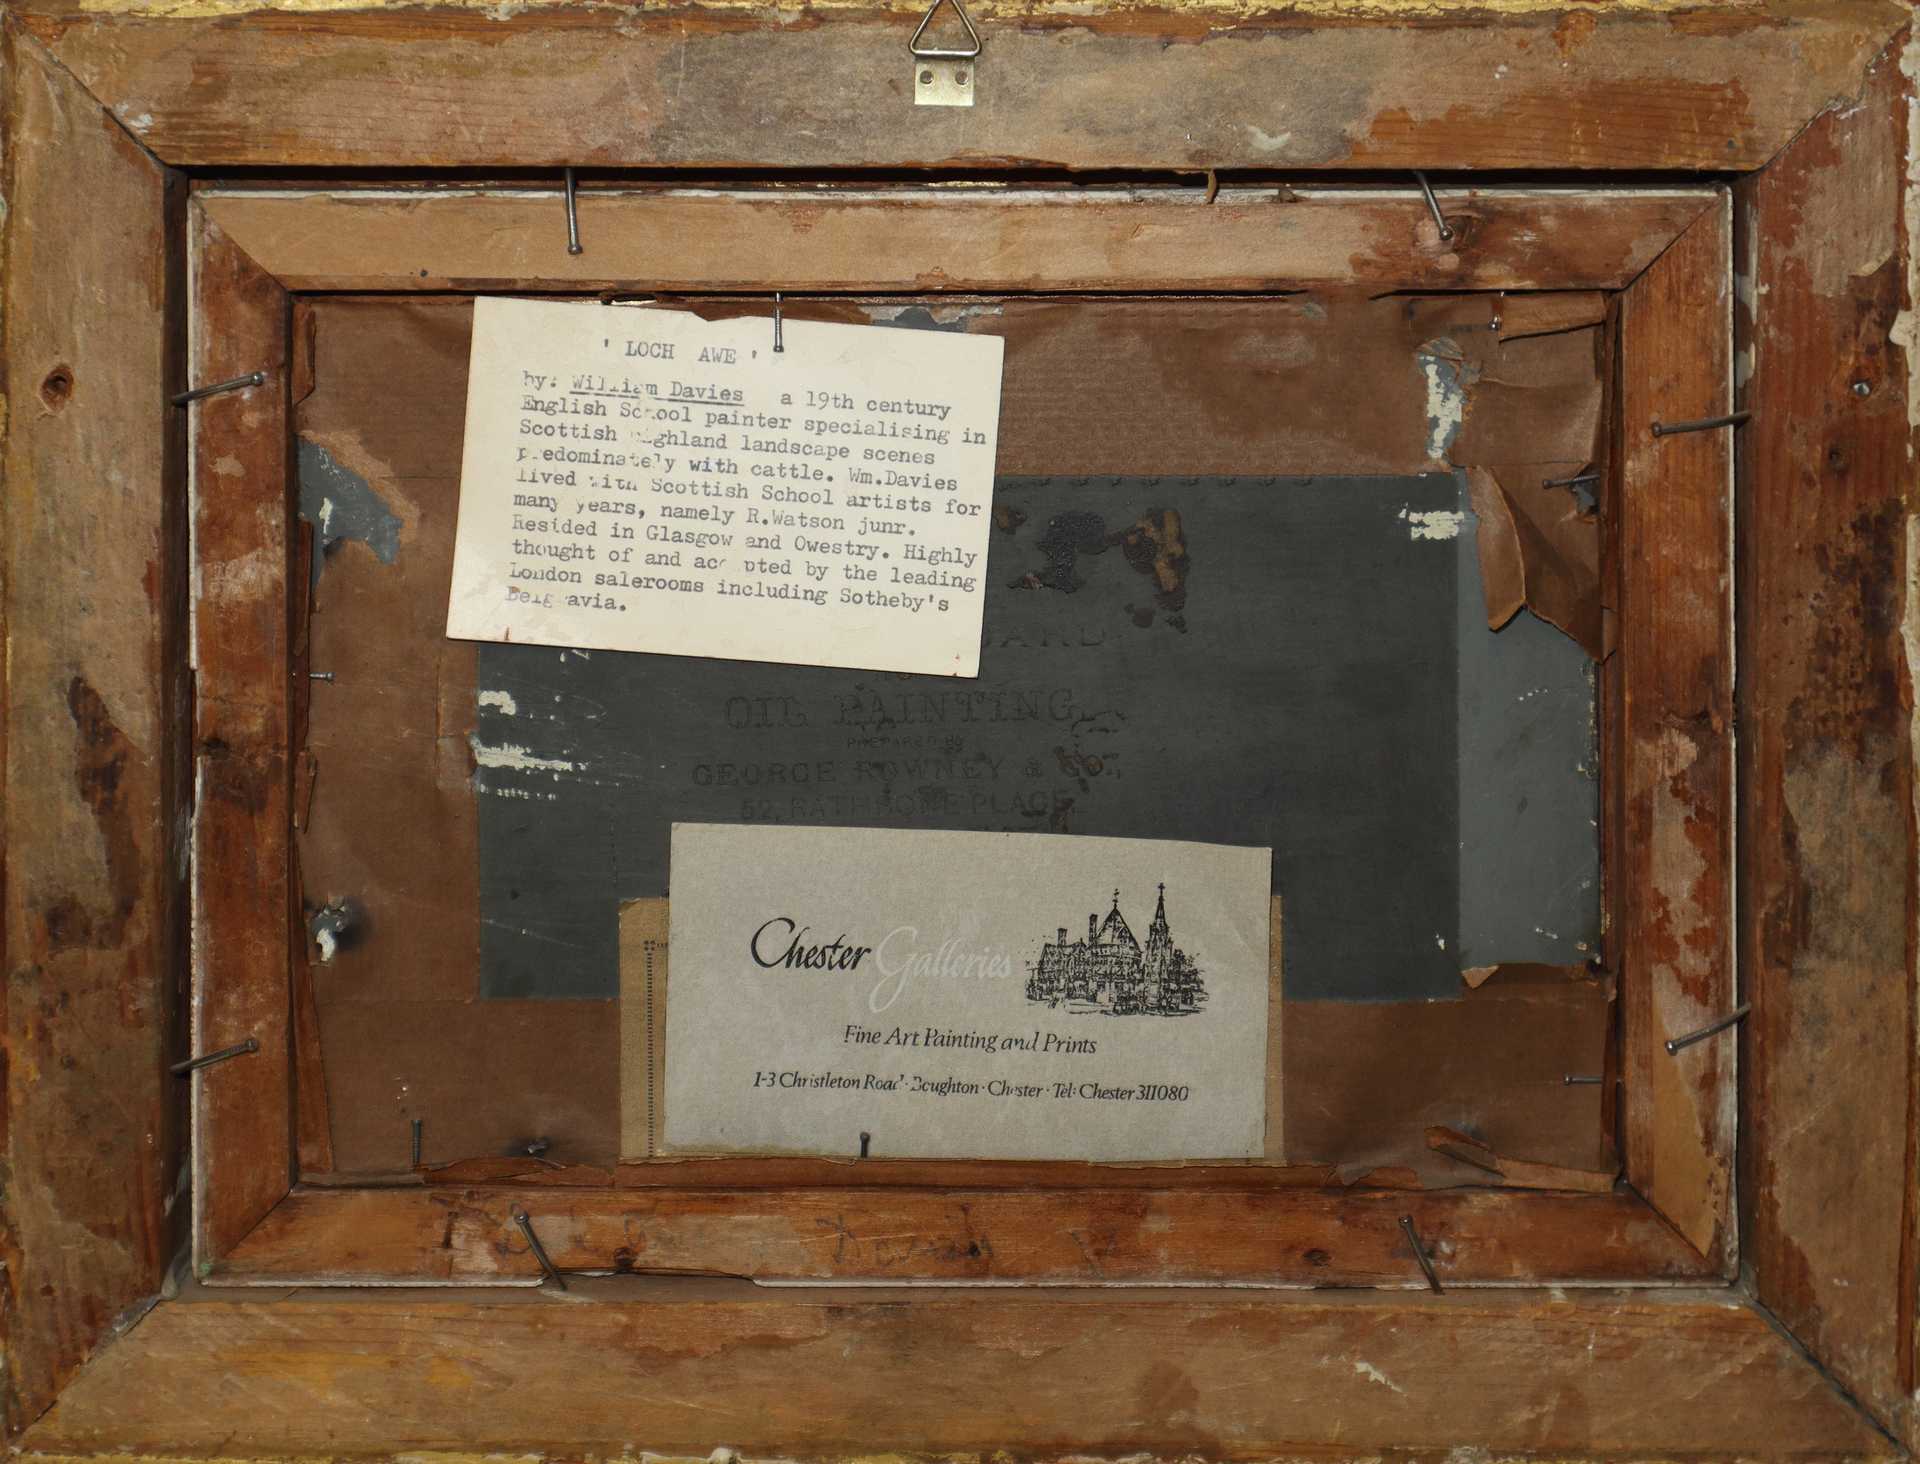 ' LOCH AWE '
by: William Davies a 19th century
English School painter specialising in
Scottish Highland landscape scenes
predominately with cattle. Wm.Davies
lived with Scottish School artists for
many years, namely R.Watson junr.
Resided in Glasgow and Owestry. Highly
thought of and accepted by the leading
London salerooms including Sotheby's
Belgravia.
OIL PAINTING,
PREPARED BY
GEORGE ROWNEY & CO.,
52, RATHBONE PLACE
Chester Galleries
Fine Art Painting and Prints
1-3 Christleton Road · Boughton · Chester · Tel: Chester 311080